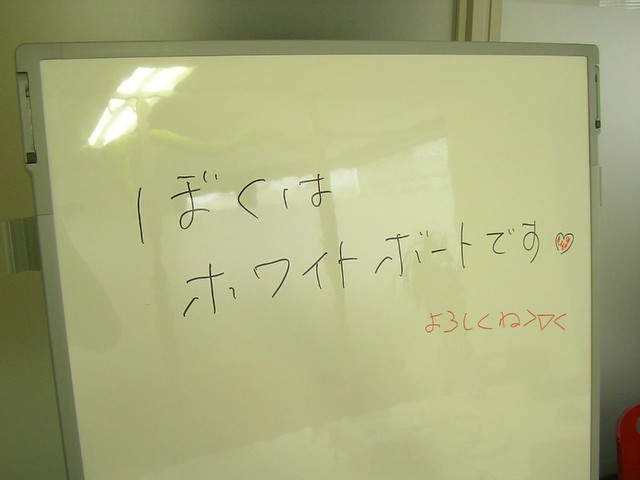 ぼくは
ホワイトボートです♡
よろしくね>▽<